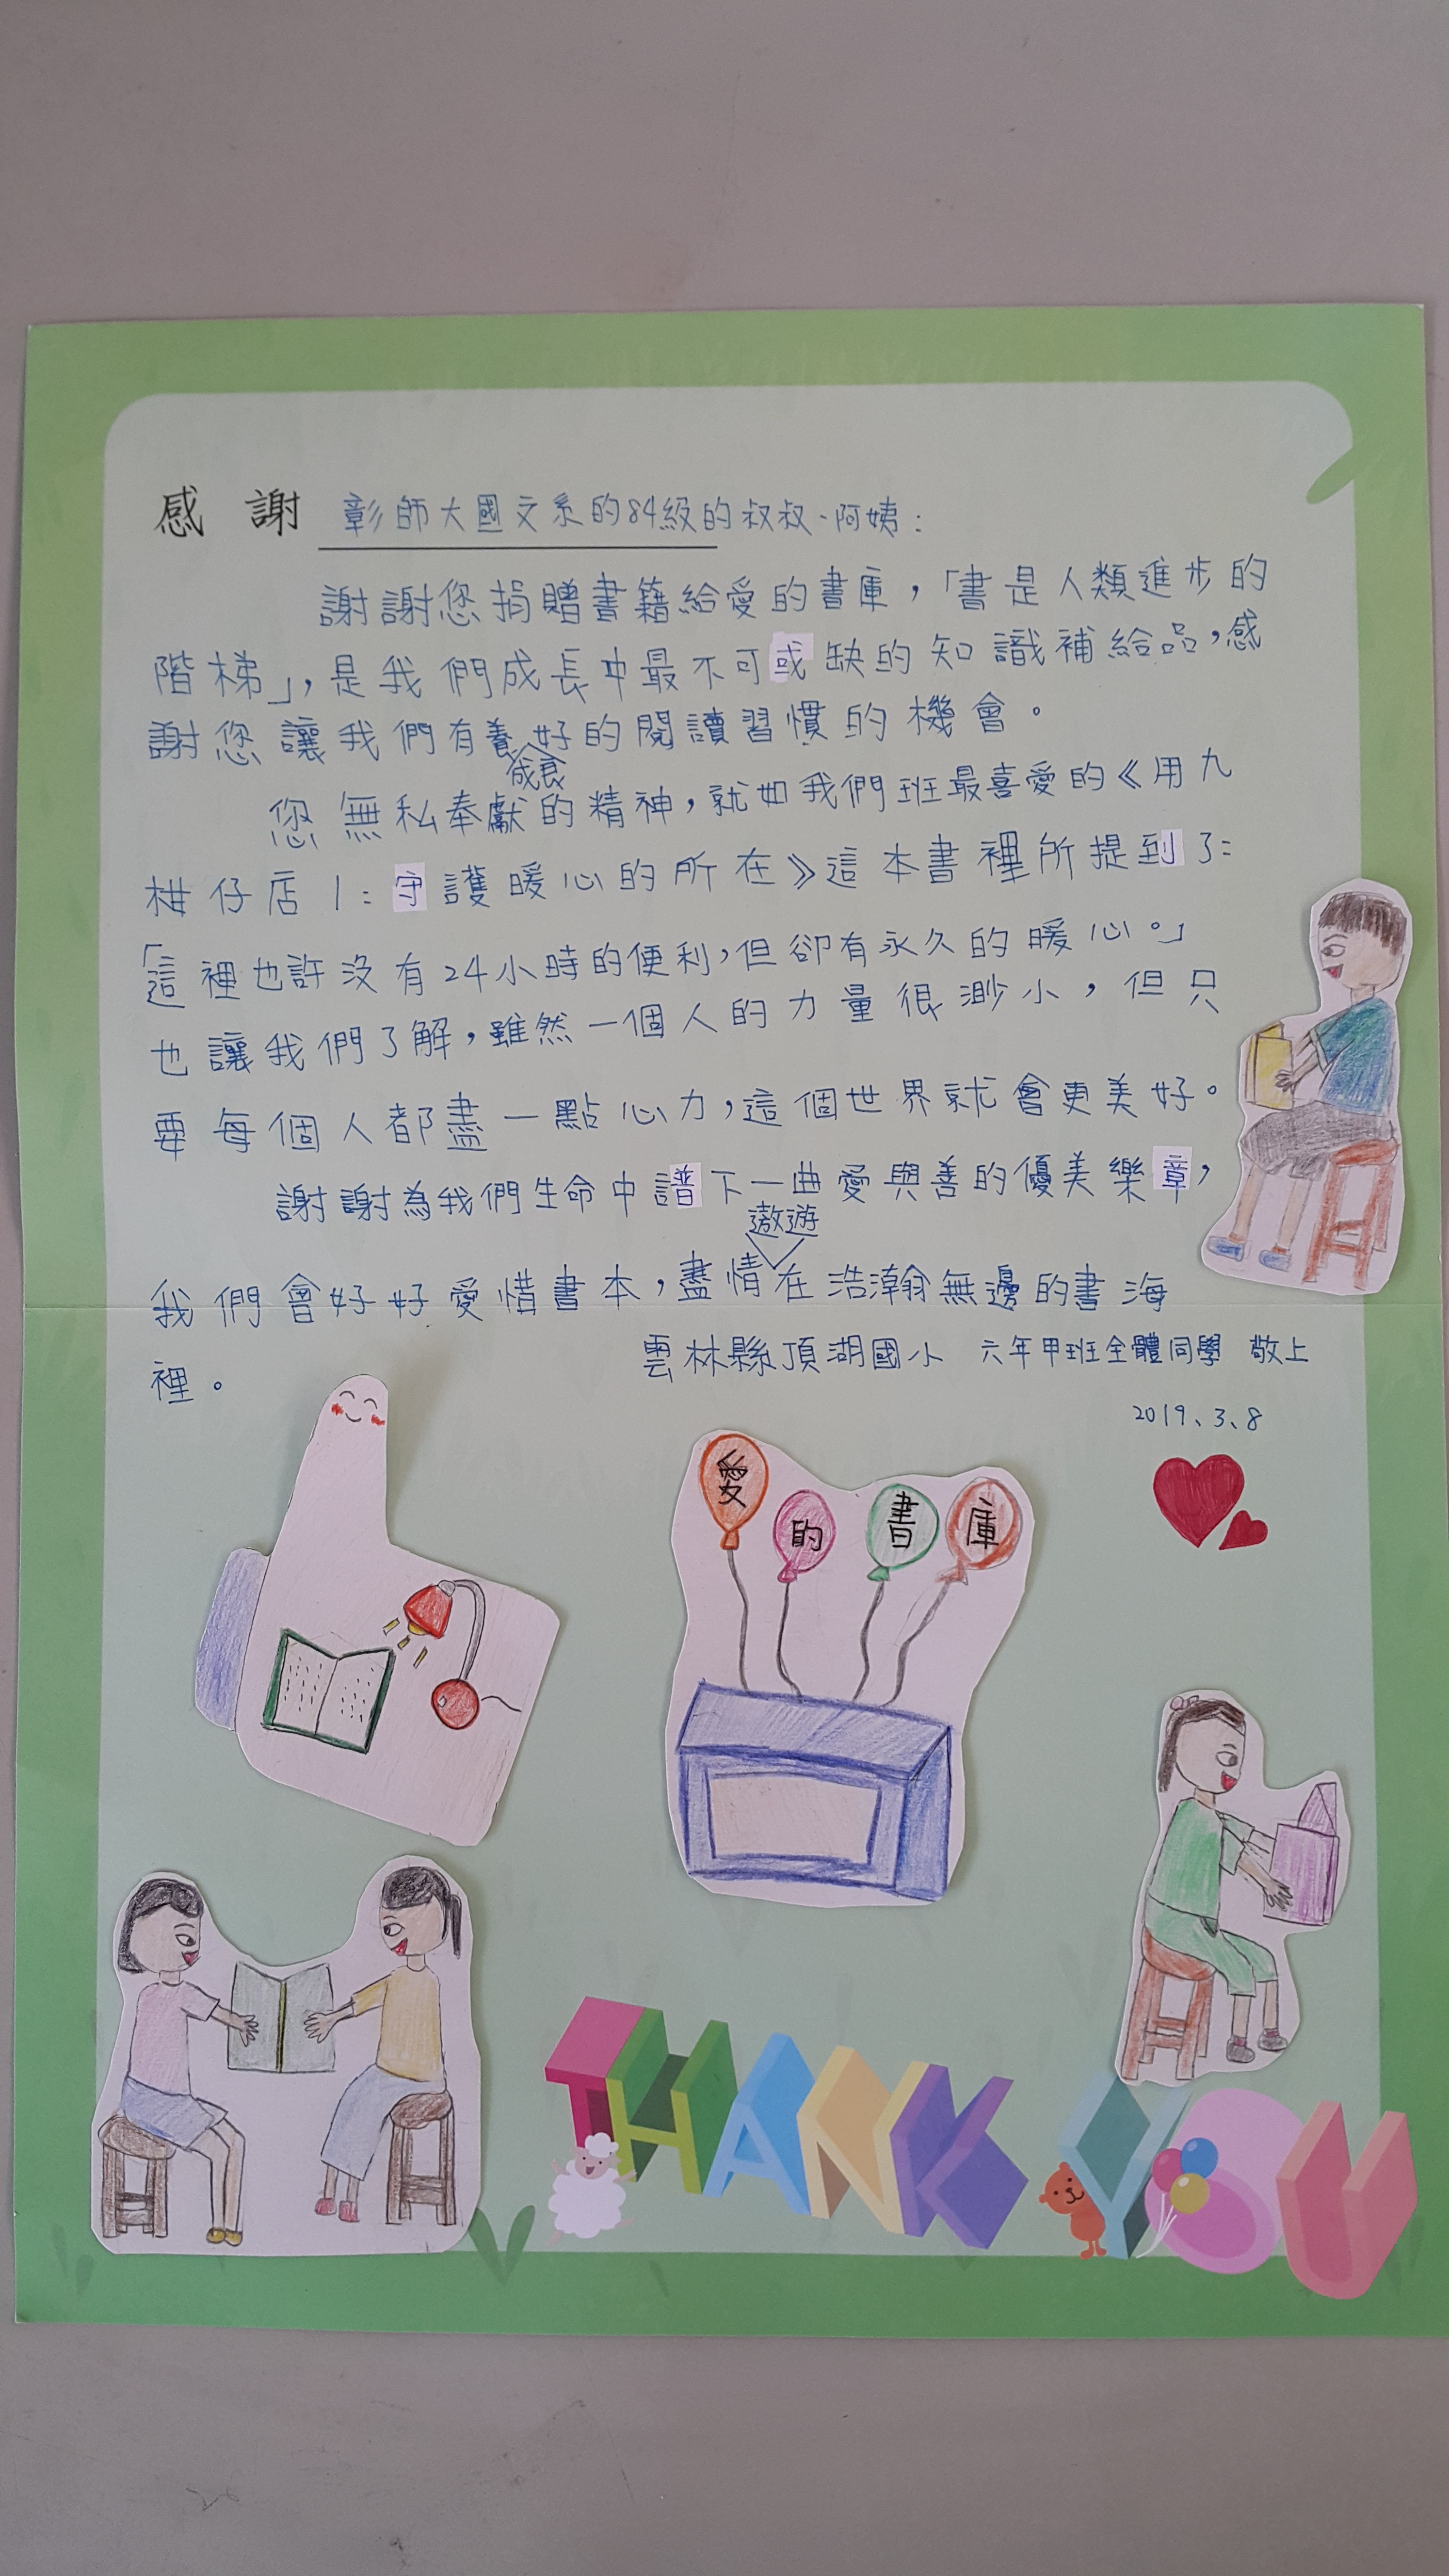 感 謝 彰師大國文系的84級的叔叔、阿姨：
謝謝您捐贈書籍給愛的書庫，「書是人類進步的
階梯」，是我們成長中最不可或缺的知識補給品，感
謝您讓我們有養成良好的閱讀習慣的機會。
您無私奉獻的精神，就如我們班最喜愛的《用九
柑仔店1：守護暖心的所在》這本書裡所提到了：
「這裡也許沒有24小時的便利，但卻有永久的暖心。」
也讓我們了解，雖然一個人的力量很渺小，但只
要每個人都盡一點心力，這個世界就會更美好。
謝謝為我們生命中譜下一曲愛與善的優美樂章，
我們會好好愛惜書本，盡情遨遊在浩瀚無邊的書海
裡。
雲林縣頂湖國小 六年甲班全體同學 敬上
2019、3、8
愛的書庫
THANK YOU